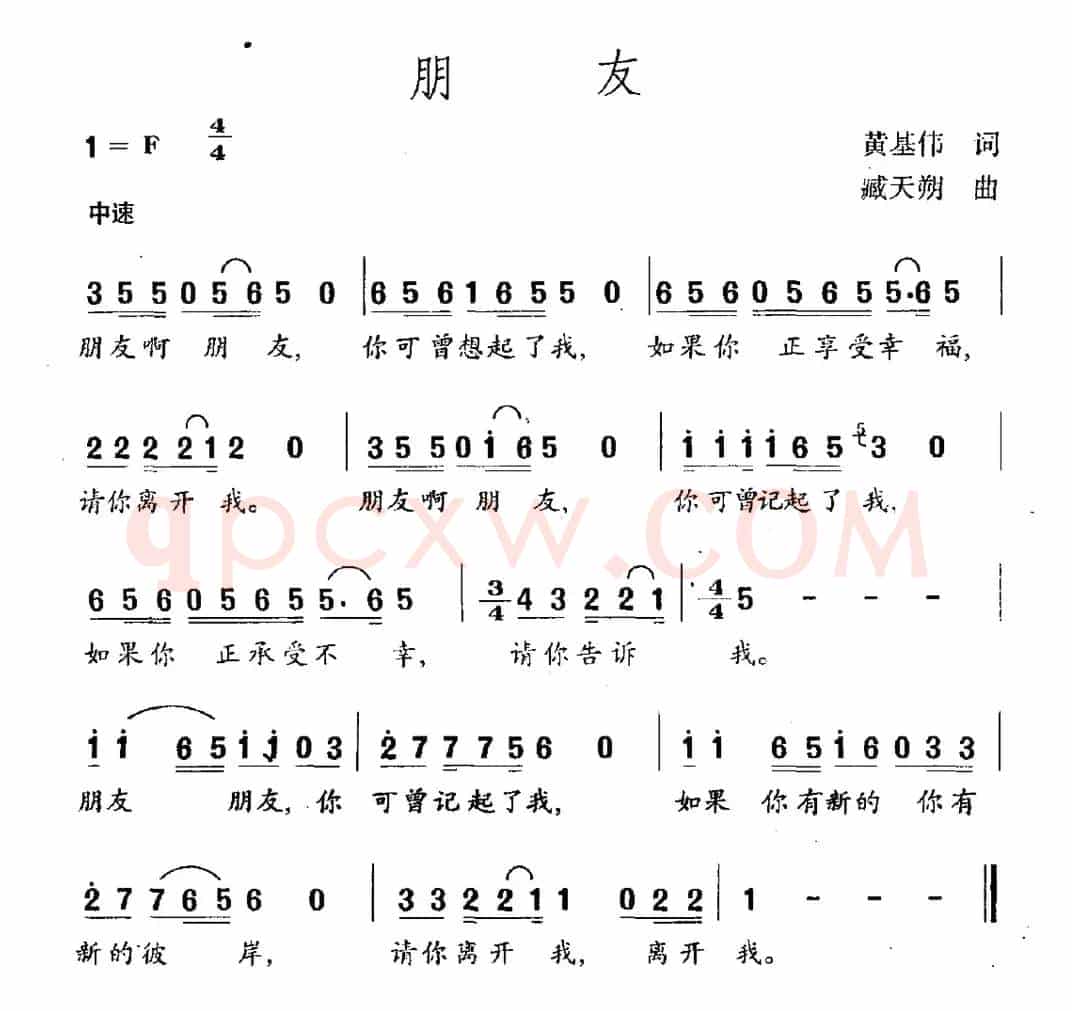 朋 友
1 = F 4/4
黄基伟 词
臧天朔 曲
中速
3 5 5 0 5 6 5 0 | 6 5 6 1 6 5 5 0 | 6 5 6 0 5 6 5 5·6 5 |
朋友啊 朋 友, 你可曾想起了我, 如果你 正享受幸 福,
2 2 2 2 1 2 0 | 3 5 5 0 i 6 5 0 | i i i i 6 5 3 0
请你离开 我。 朋友啊 朋 友, 你可曾记起了我,
qpcxw.COM
6 5 6 0 5 6 5 5· 6 5 | 3/4 4 3 2 2 1 | 4/4 5 - - - |
如果你 正承受不 幸, 请你告诉 我。
i i 6 5 i i 0 3 | 2̇ 7 7 7 5 6 0 | i i 6 5 i 6 0 3 3 |
朋友 朋友, 你 可曾记起了我, 如果 你有新的 你有
2̇ 7 7 6 5 6 0 | 3 3 2 2 1 1 0 2 2 | 1 - - - ‖
新的彼 岸, 请你离开我, 离开 我。